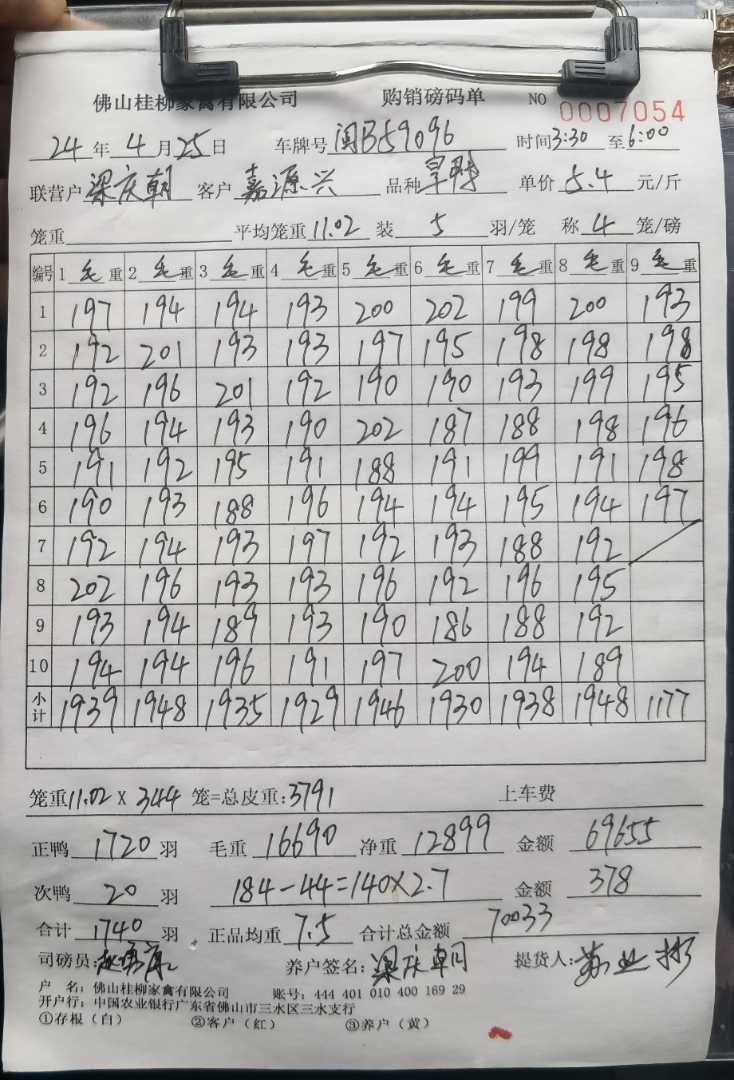 佛山桂柳家禽有限公司 购销磅码单 NO 0007054
24年4月25日 车牌号 闽B59096 时间3:30至6:00
联营户 梁庆朝 客户 嘉源兴 品种 单价 5.4 元/斤
笼重 平均笼重 11.02 装 5 羽/笼 称 4 笼/磅
编号 1 毛重 2 毛重 3 毛重 4 毛重 5 毛重 6 毛重 7 毛重 8 毛重 9 毛重
1 197 194 194 193 200 202 199 200 193
2 192 201 193 193 197 195 198 198 198
3 192 196 201 192 190 190 193 199 195
4 196 194 193 190 202 187 188 198 196
5 191 192 195 191 188 191 199 191 198
6 190 193 188 196 194 194 195 194 197
7 192 194 193 197 192 193 188 192
8 202 196 193 193 196 192 196 195
9 193 194 189 193 190 186 188 192
10 194 194 196 191 197 200 194 189
小计 1939 1948 1935 1929 1946 1930 1938 1948 1177
笼重11.02 X 344 笼=总皮重:3791 上车费
正鸭 1720 羽 毛重 16690 净重 12899 金额 69655
次鸭 20 羽 184-44=140×2.7 金额 378
合计 1740 羽 正品均重 7.5 合计总金额 70033
司磅员: 养户签名: 梁庆朝 提货人:
户 名: 佛山桂柳家禽有限公司 账号: 444 401 010 400 169 29
开户行: 中国农业银行广东省佛山市三水区三水支行
①存根(白) ②客户(红) ③养户(黄)